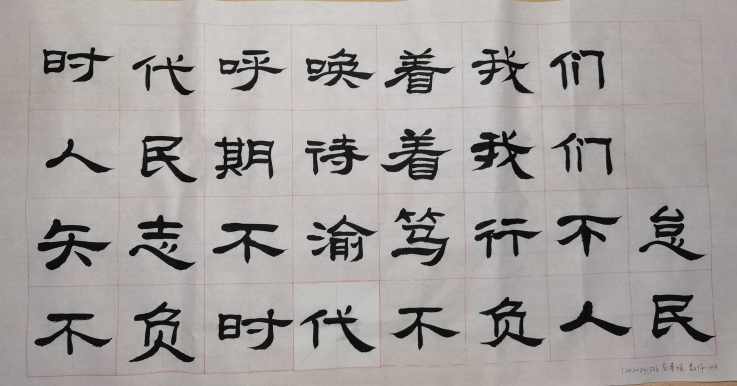 时代呼唤着我们
人民期待着我们
矢志不渝笃行不怠
不负时代不负人民